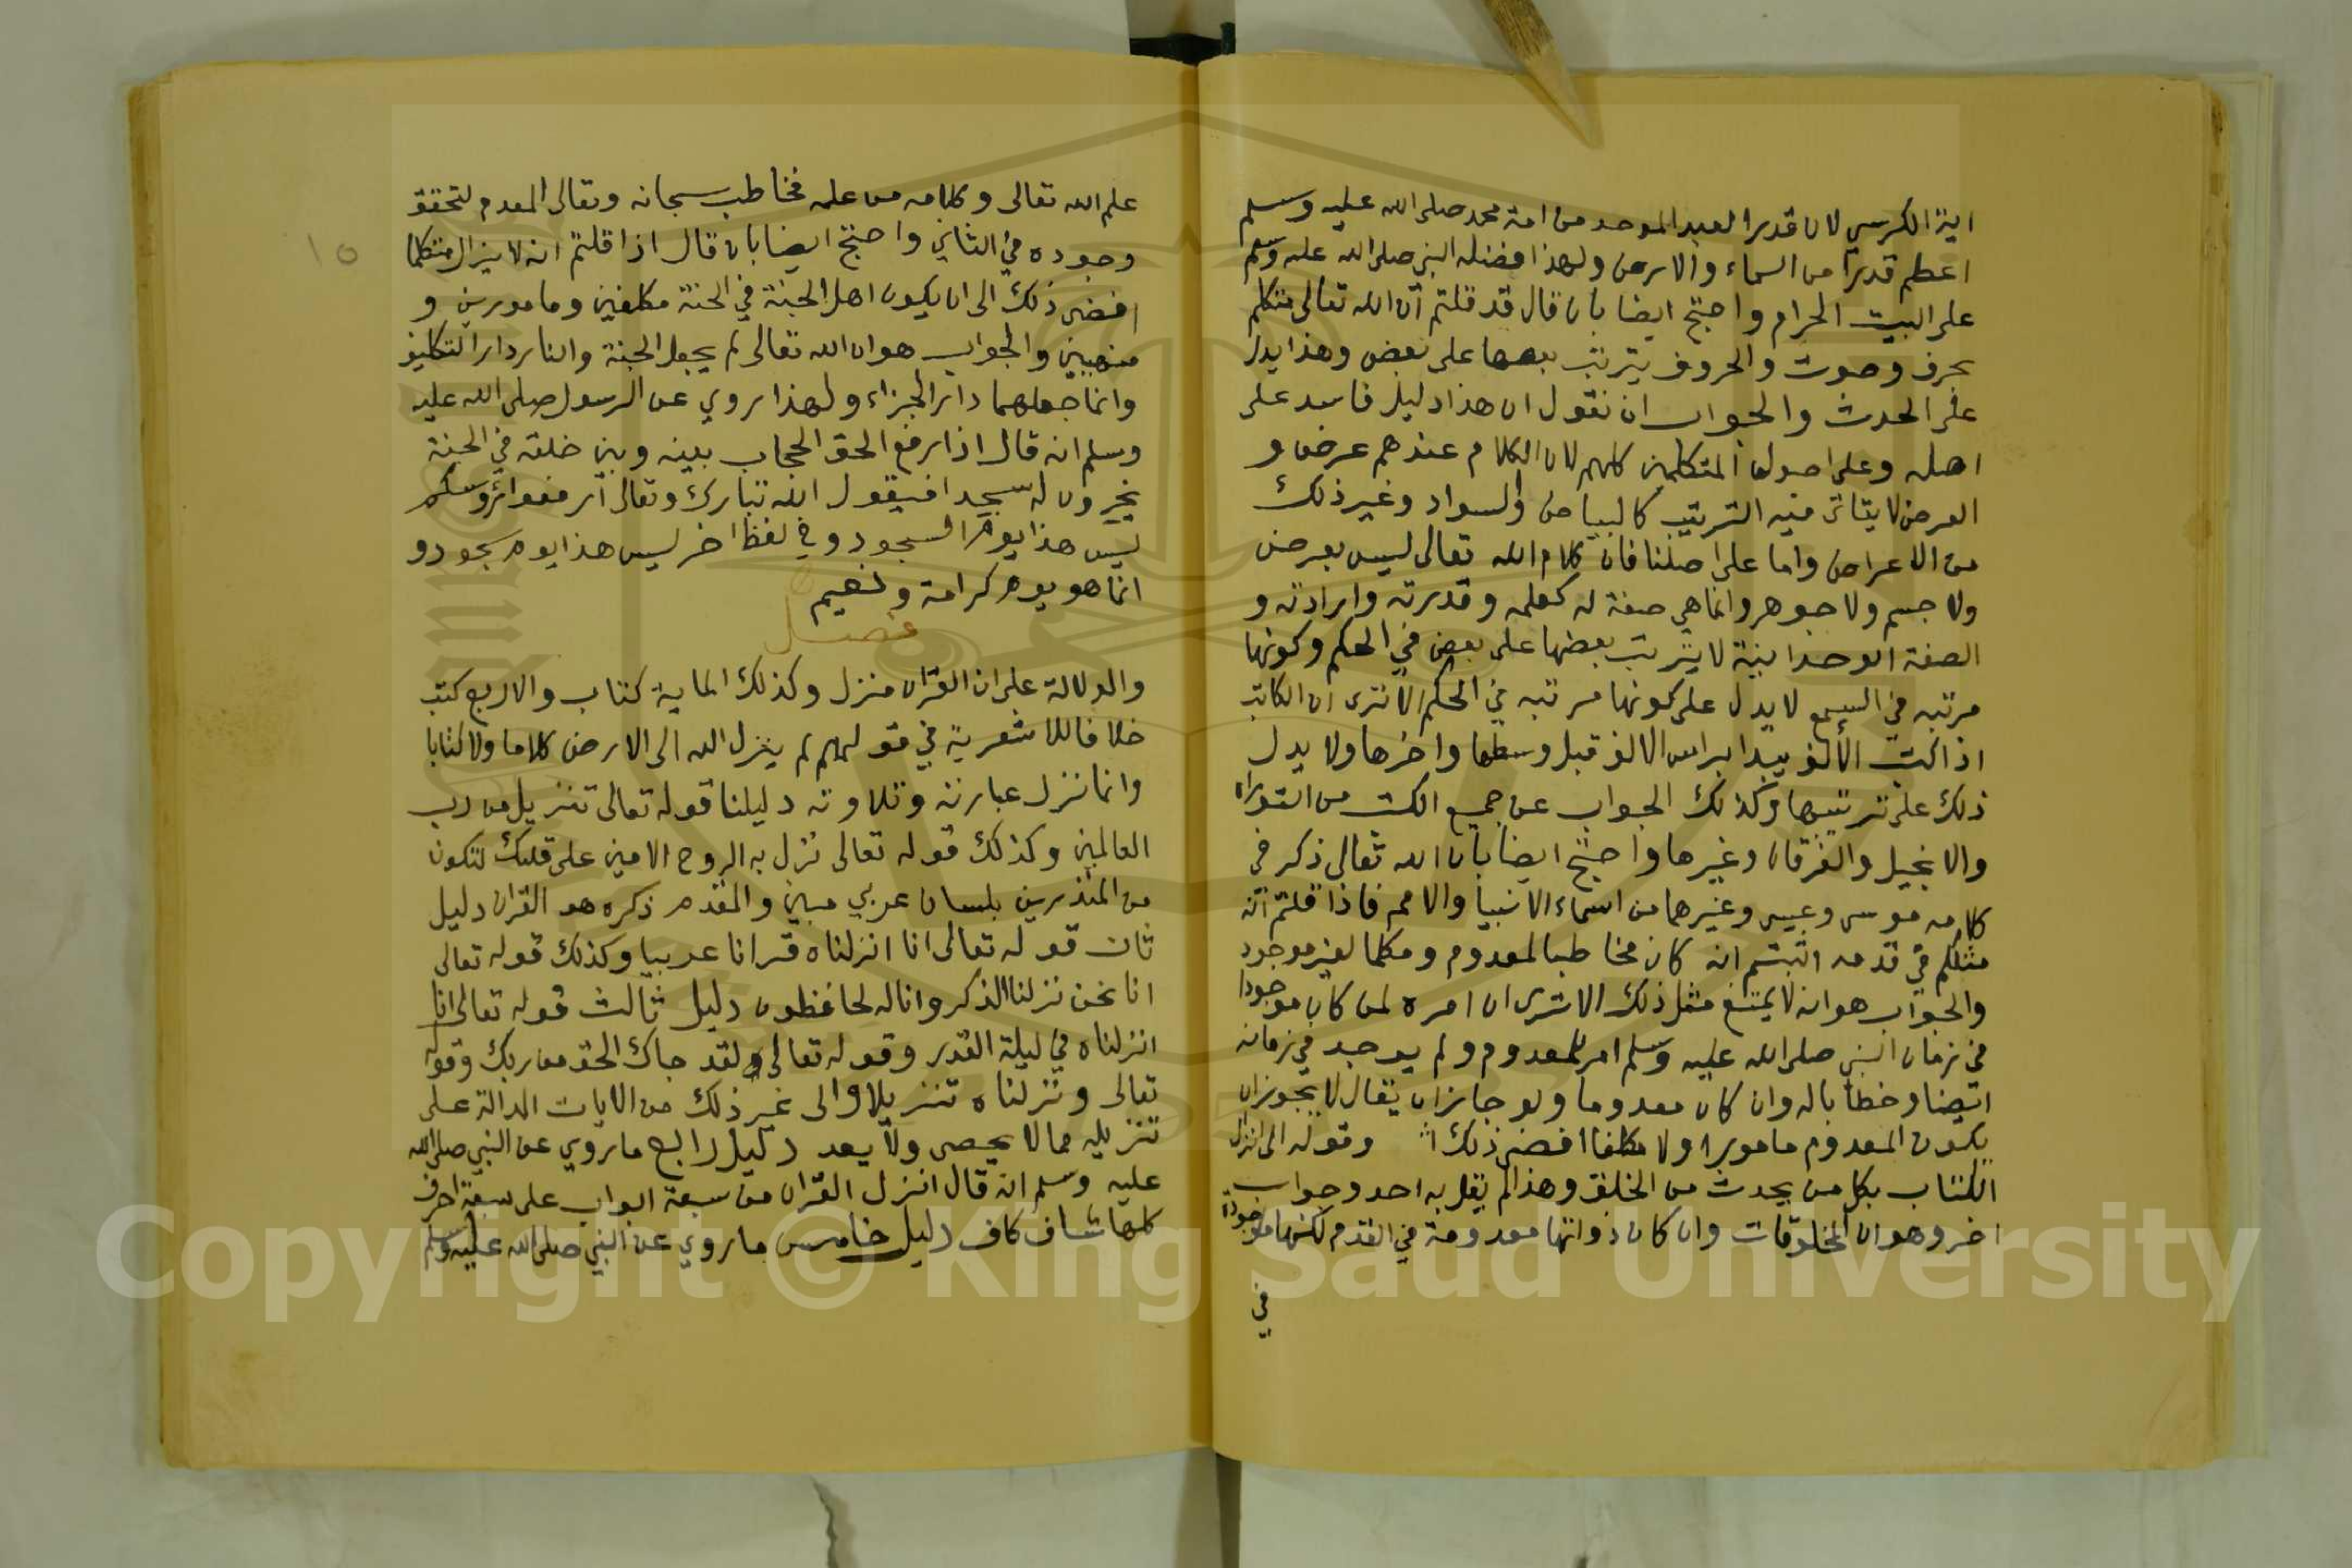 اية الكرسي لان قدر العبد الموحد من امة محمد صلى الله عليه وسلم
اعظم قدرا من السماء والارض ولهذا فضله النبي صلى الله عليه وسلم
على البيت الحرام واحتج ايضا بان قال قد قلتم ان الله تعالى متكلم
بحرف وصوت والحروف يترتب بعضها على بعض وهذا يدل
على الحدث والجواب ان نقول ان هذا دليل فاسد على
اصله وعلى اصول المتكلمين كلهم لان الكلام عندهم عرض و
العرض لا يتاتى فيه الترتيب كالبياض والسواد وغير ذلك
من الاعراض واما على اصلنا فان كلام الله تعالى ليس بعرض
ولا جسم ولا جوهر وانما هي صفة له كعلمه وقدرته وارادته و
الصفة الوحدانية لا يترتب بعضها على بعض في الحكم وكونها
مرتبه في السمع لا يدل على كونها مرتبه في الحكم الا ترى ان الكاتب
اذا كتب الالف يبدا براس الالف قبل وسطها واخرها ولا يدل
ذلك على ترتيبها وكذلك الجواب عن جميع الكتب من التوراه
والانجيل والفرقان وغيرها واحتج ايضا بان الله تعالى ذكر في
كلامه موسى وعيسى وغيرهما من اسماء الانبيا والامم فاذا قلتم انه
متكلم في قدمه اثبتم انه كان مخاطبا لمعدوم ومكلما لغير موجود
والجواب هو انه لا يمتنع مثل ذلك الا ترى ان امره لمن كان موجودا
في زمان النبي صلى الله عليه وسلم امر للمعدوم ولم يوجد في زمانه
ايضا وخطابا له وان كان معدوما ولو جاز ان يقال لا يجوز ان
يكون المعدوم مامورا ولا مكلفا افضى ذلك وقوله الى انزل
الكتاب بكل من يحدث من الخلق وهذا لم يقل به احد وجواب
اخر وهو ان المخلوقات وان كان ذواتها معدومة في القدم لكنها موجودة
في
١٥
علم الله تعالى وكلامه من علمه فخاطب سبحانه وتعالى المعدم لتحقق
وجوده في الثاني واحتج ايضا بان قال اذا قلتم انه لا يزال متكلما
افضى ذلك الى ان يكون اهل الجنة في الجنة مكلفين ومامورين و
منهيين والجواب هو ان الله تعالى لم يجعل الجنة والنار دار التكليف
وانما جعلهما دار الجزاء ولهذا روي عن الرسول صلى الله عليه
وسلم انه قال اذا رفع الحق الحجاب بينه وبين خلقه في الجنة
يخرون له سجدا فيقول الله تبارك وتعالى ارفعوا رؤوسكم
ليس هذا يوم السجود وفي لفظ اخر ليس هذا يوم سجود و
انما هو يوم كرامة ونعيم
فصل
والدلالة على ان القران منزل وكذلك الماية كتاب والاربع كتب
خلافا للاشعرية في قولهم لم ينزل الله الى الارض كلاما ولا كتابا
وانما نزل عبارته وتلاوته دليلنا قوله تعالى تنزيل من رب
العالمين وكذلك قوله تعالى نزل به الروح الامين على قلبك لتكون
من المنذرين بلسان عربي مبين والمقدم ذكره هو القران دليل
ثان قوله تعالى انا انزلناه قرانا عربيا وكذلك قوله تعالى
انا نحن نزلنا الذكر وانا له لحافظون دليل ثالث قوله تعالى انا
انزلناه في ليلة القدر وقوله تعالى ولقد جاك الحق من ربك وقوله
تعالى ونزلناه تنزيلا والى غير ذلك من الايات الدالة على
تنزيله مما لا يحصى ولا يعد دليل رابع ما روي عن النبي صلى الله
عليه وسلم انه قال انزل القران من سبعة ابواب على سبعة احرف
كلها شاف كاف دليل خامس ما روي عن النبي صلى الله عليه وسلم
Copyright © King Saud University